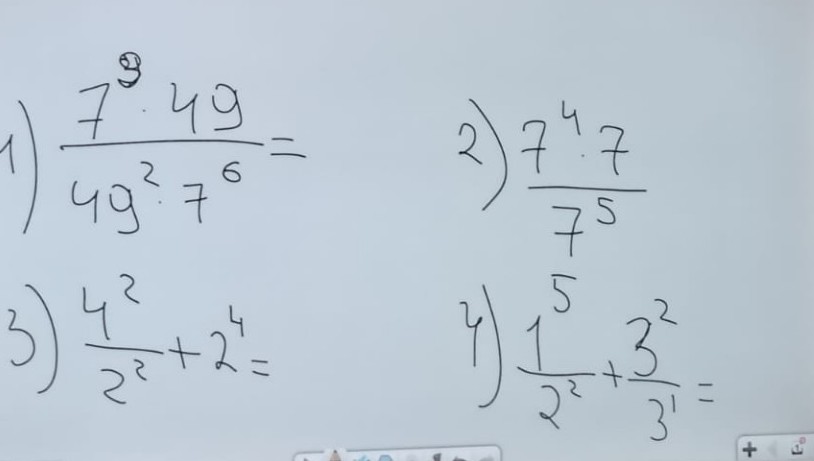 1) (7^9 · 49)/(49^2 · 7^6) =
2) (7^4 · 7)/(7^5)
3) (4^2)/(2^2) + 2^4 =
4) (1^5)/(2^2) + (3^2)/(3^1) =